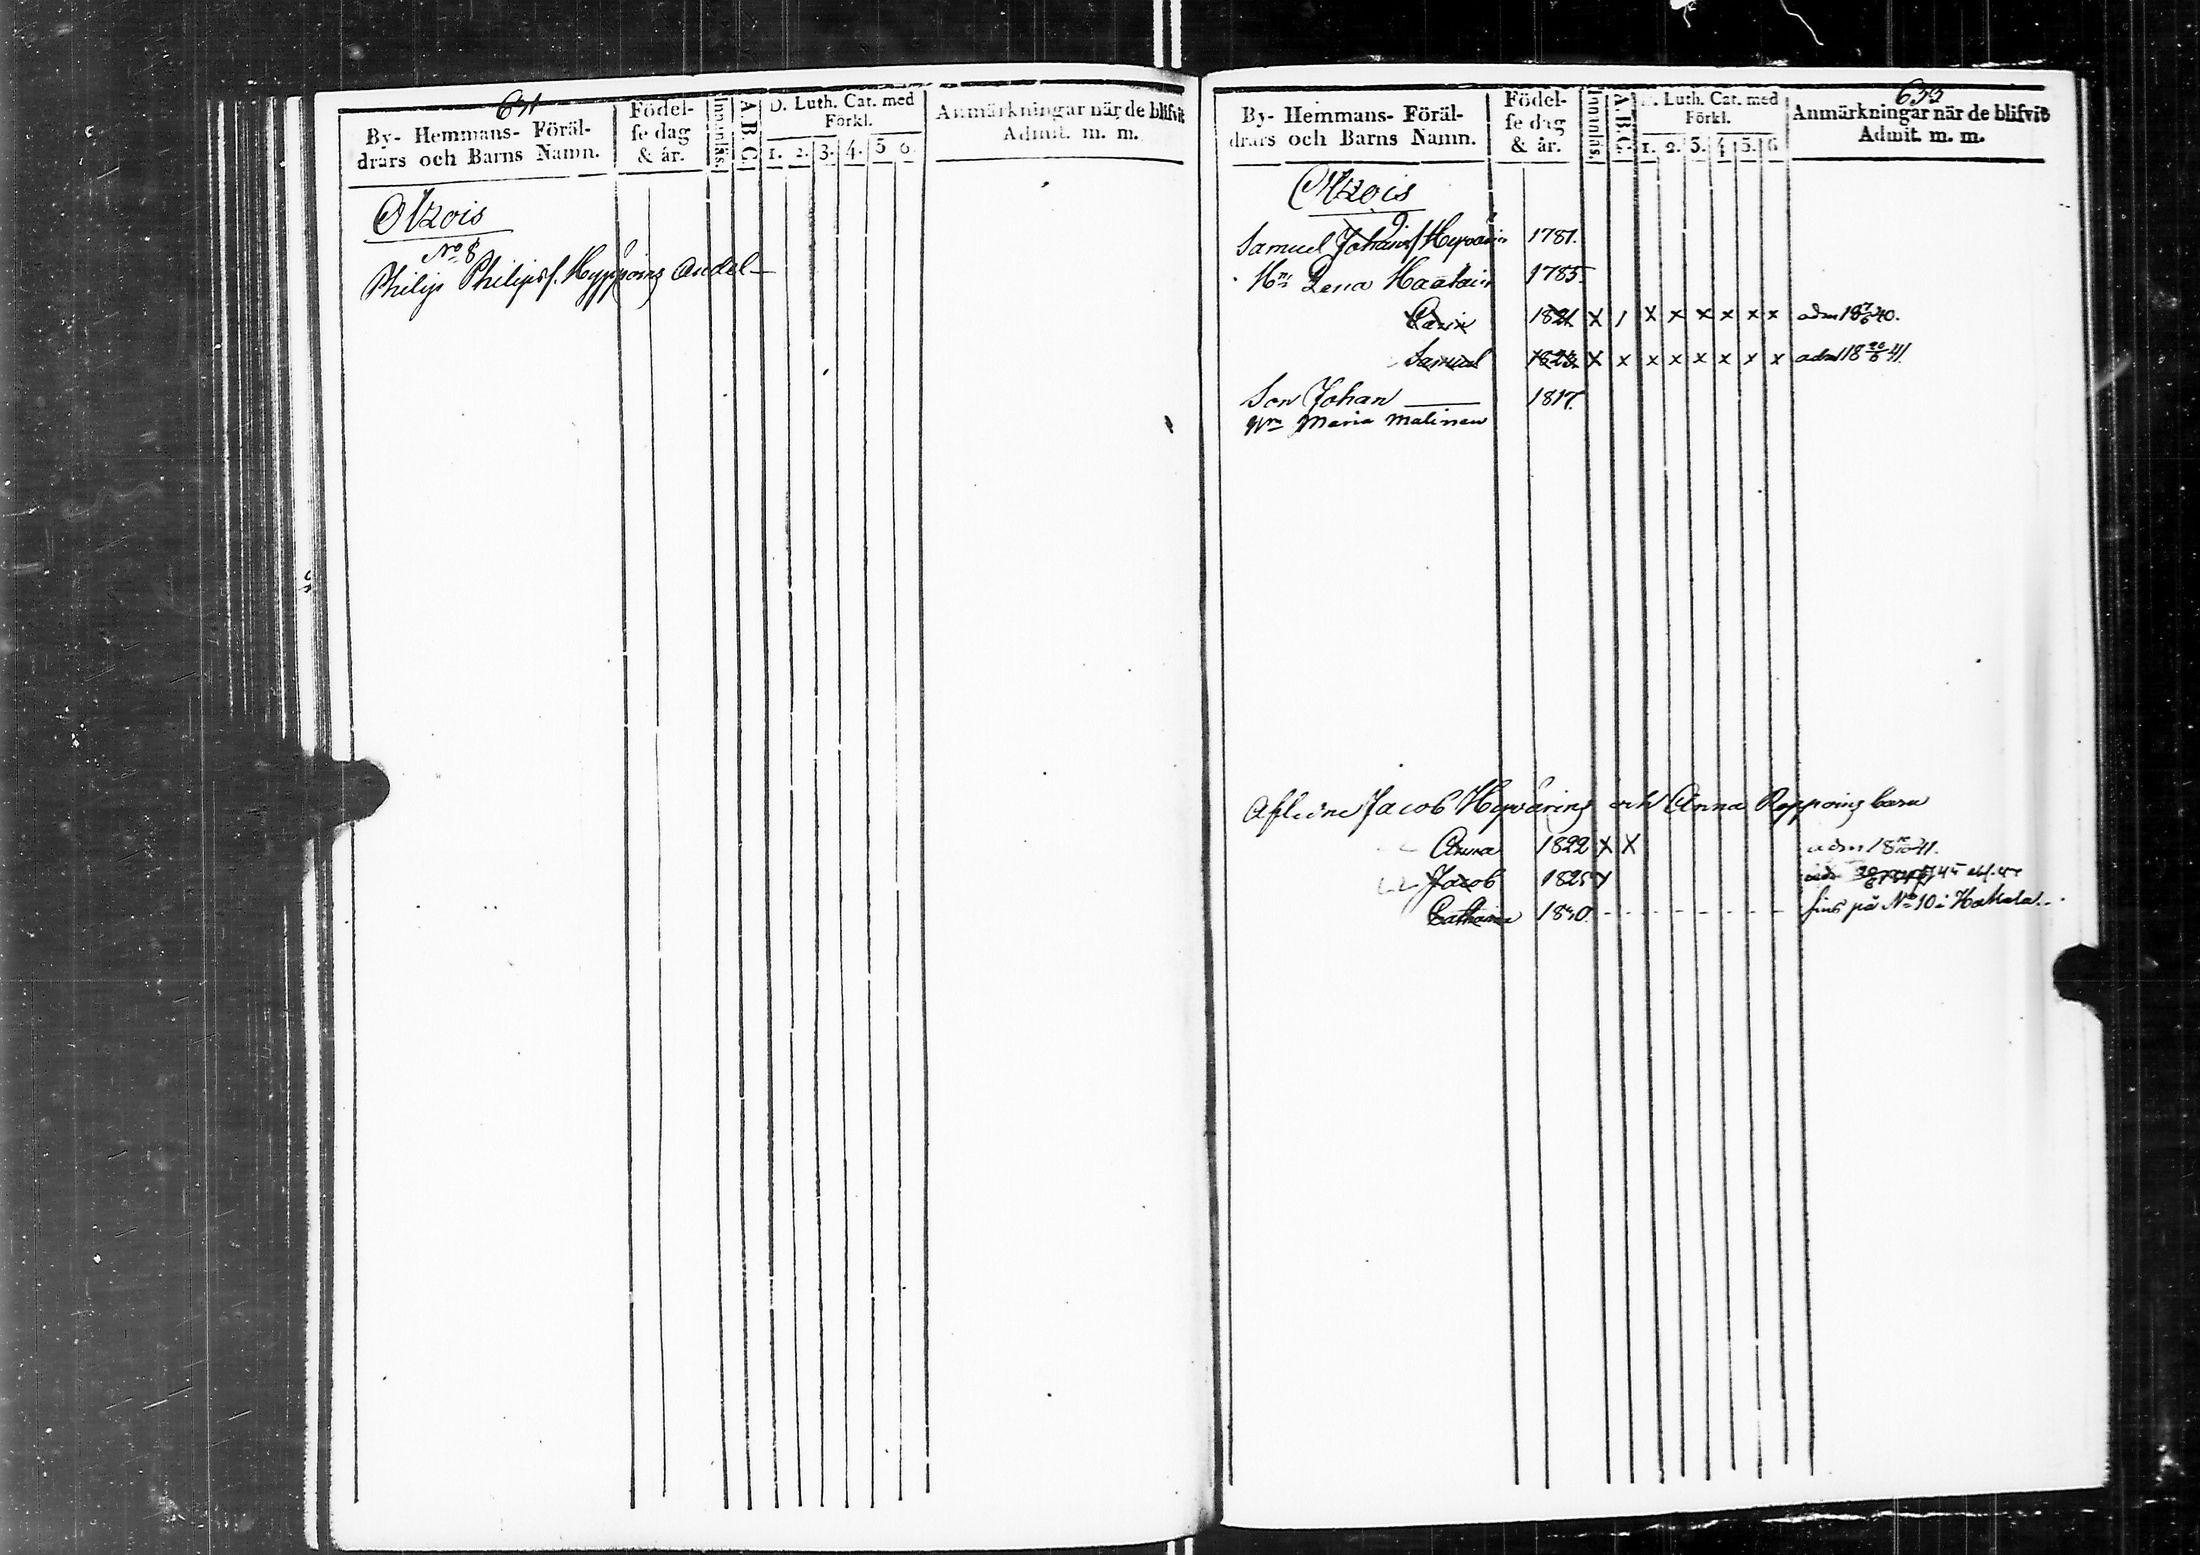 631
By- Hemmans- Föräl-
drars och Barns Namn.
Födel-
se dag
& år.
Innanläs.
A.B.C.
D. Luth. Cat. med
Förkl.
1. 2. 3. 4. 5 6.
Anmärkningar när de blifvit
Admit. m. m.
No 8
Philip Philipss. Hyppöins Andel
633
By- Hemmans- Föräl-
drars och Barns Namn.
Födel-
se dag
& år.
Innanläs.
A.B.C.
D. Luth. Cat. med
Förkl.
1. 2. 3. 4 5. 6
Anmärkningar när de blifvit
Admit. m. m.
Samuel Johans. Hyvärin 1781.
Hu Lena Haatain 1785.
Carin 1821 X / X x x x x x adm 18 7/6 40.
Samuel 1823 X x x x x x x x adm 18 20/6 41.
Son Johan 1817.
Maria Malinen
Aflidne Jacob Hyvärins och Anna Reppoins barn
Anna 1822 X X adm 41.
Jacob 1825
Catharina 1830 fins på No 10 i Hakkala.